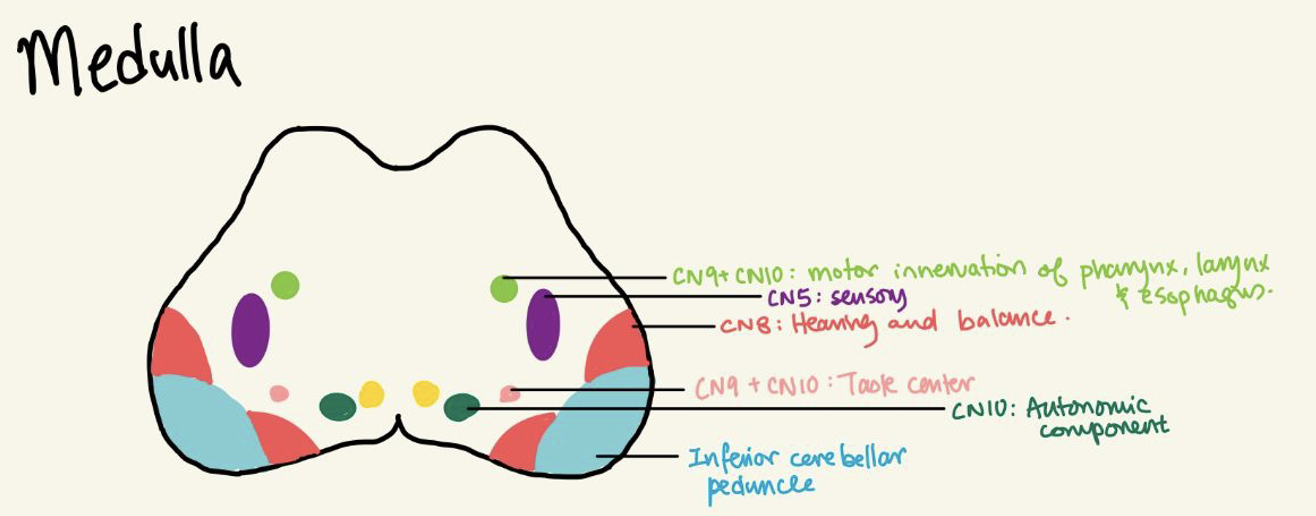 Medulla
CN9+ CN10: motor innervation of pharynx, larynx
& esophagus.
CN5: sensory
CN8: Hearing and balance.
CN9 + CN10: Taste center
CN10: Autonomic
component
Inferior cerebellar
peduncle